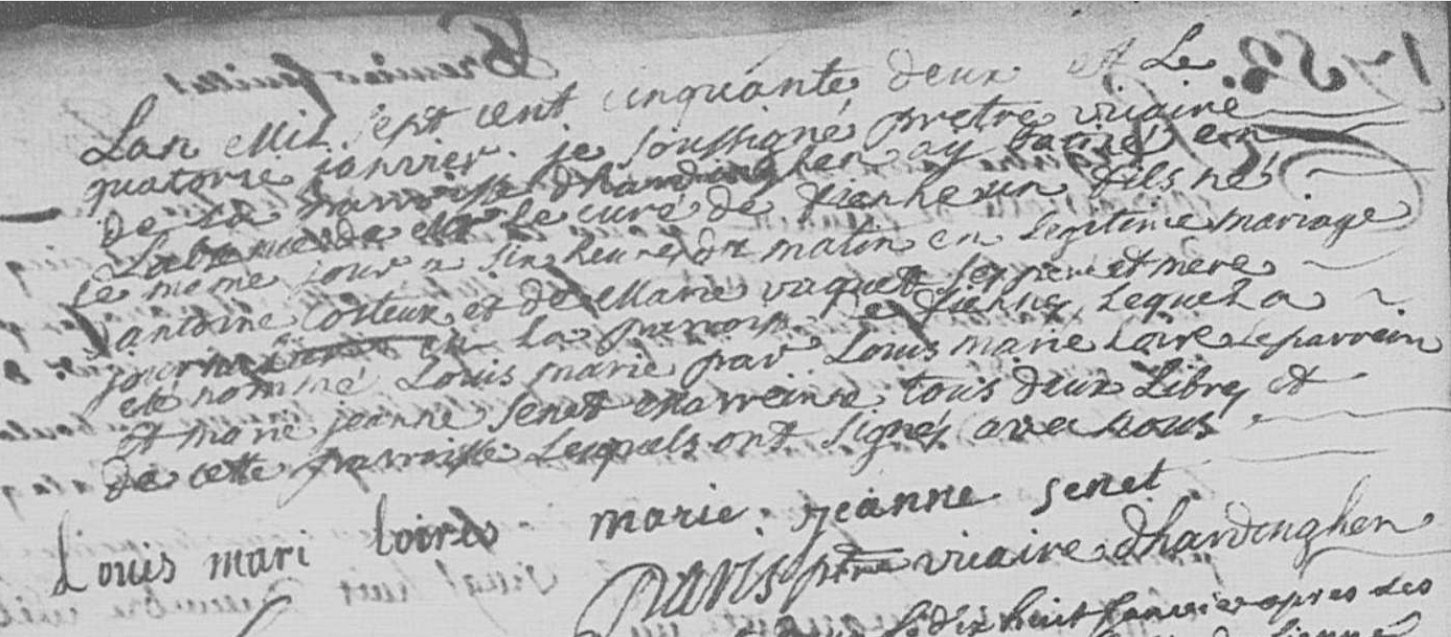 Lan Mil sept cent cinquante deux et Le
quatorze janvier je soussigné pretre vicaire
de la parroisse dhardinghen ay batisé en
Labsence de Mr Le curé de fienne un fils nés
Le meme jour a six heures du matin en Legitime mariage
d'antoine Coiteux et de Marie vaquet ses pere et mere
en La parroisse de fiennes Lequel a
eté nommé Louis marie par Louis marie Loire Le parrein
et marie jeanne senet Marreine tous deux Libres et
de cette parroisse Lesquels ont signés avec nous
Louis mari loires marie jeanne senet
paris ptre vicaire dhardinghen
Le dix huit janvier apres des